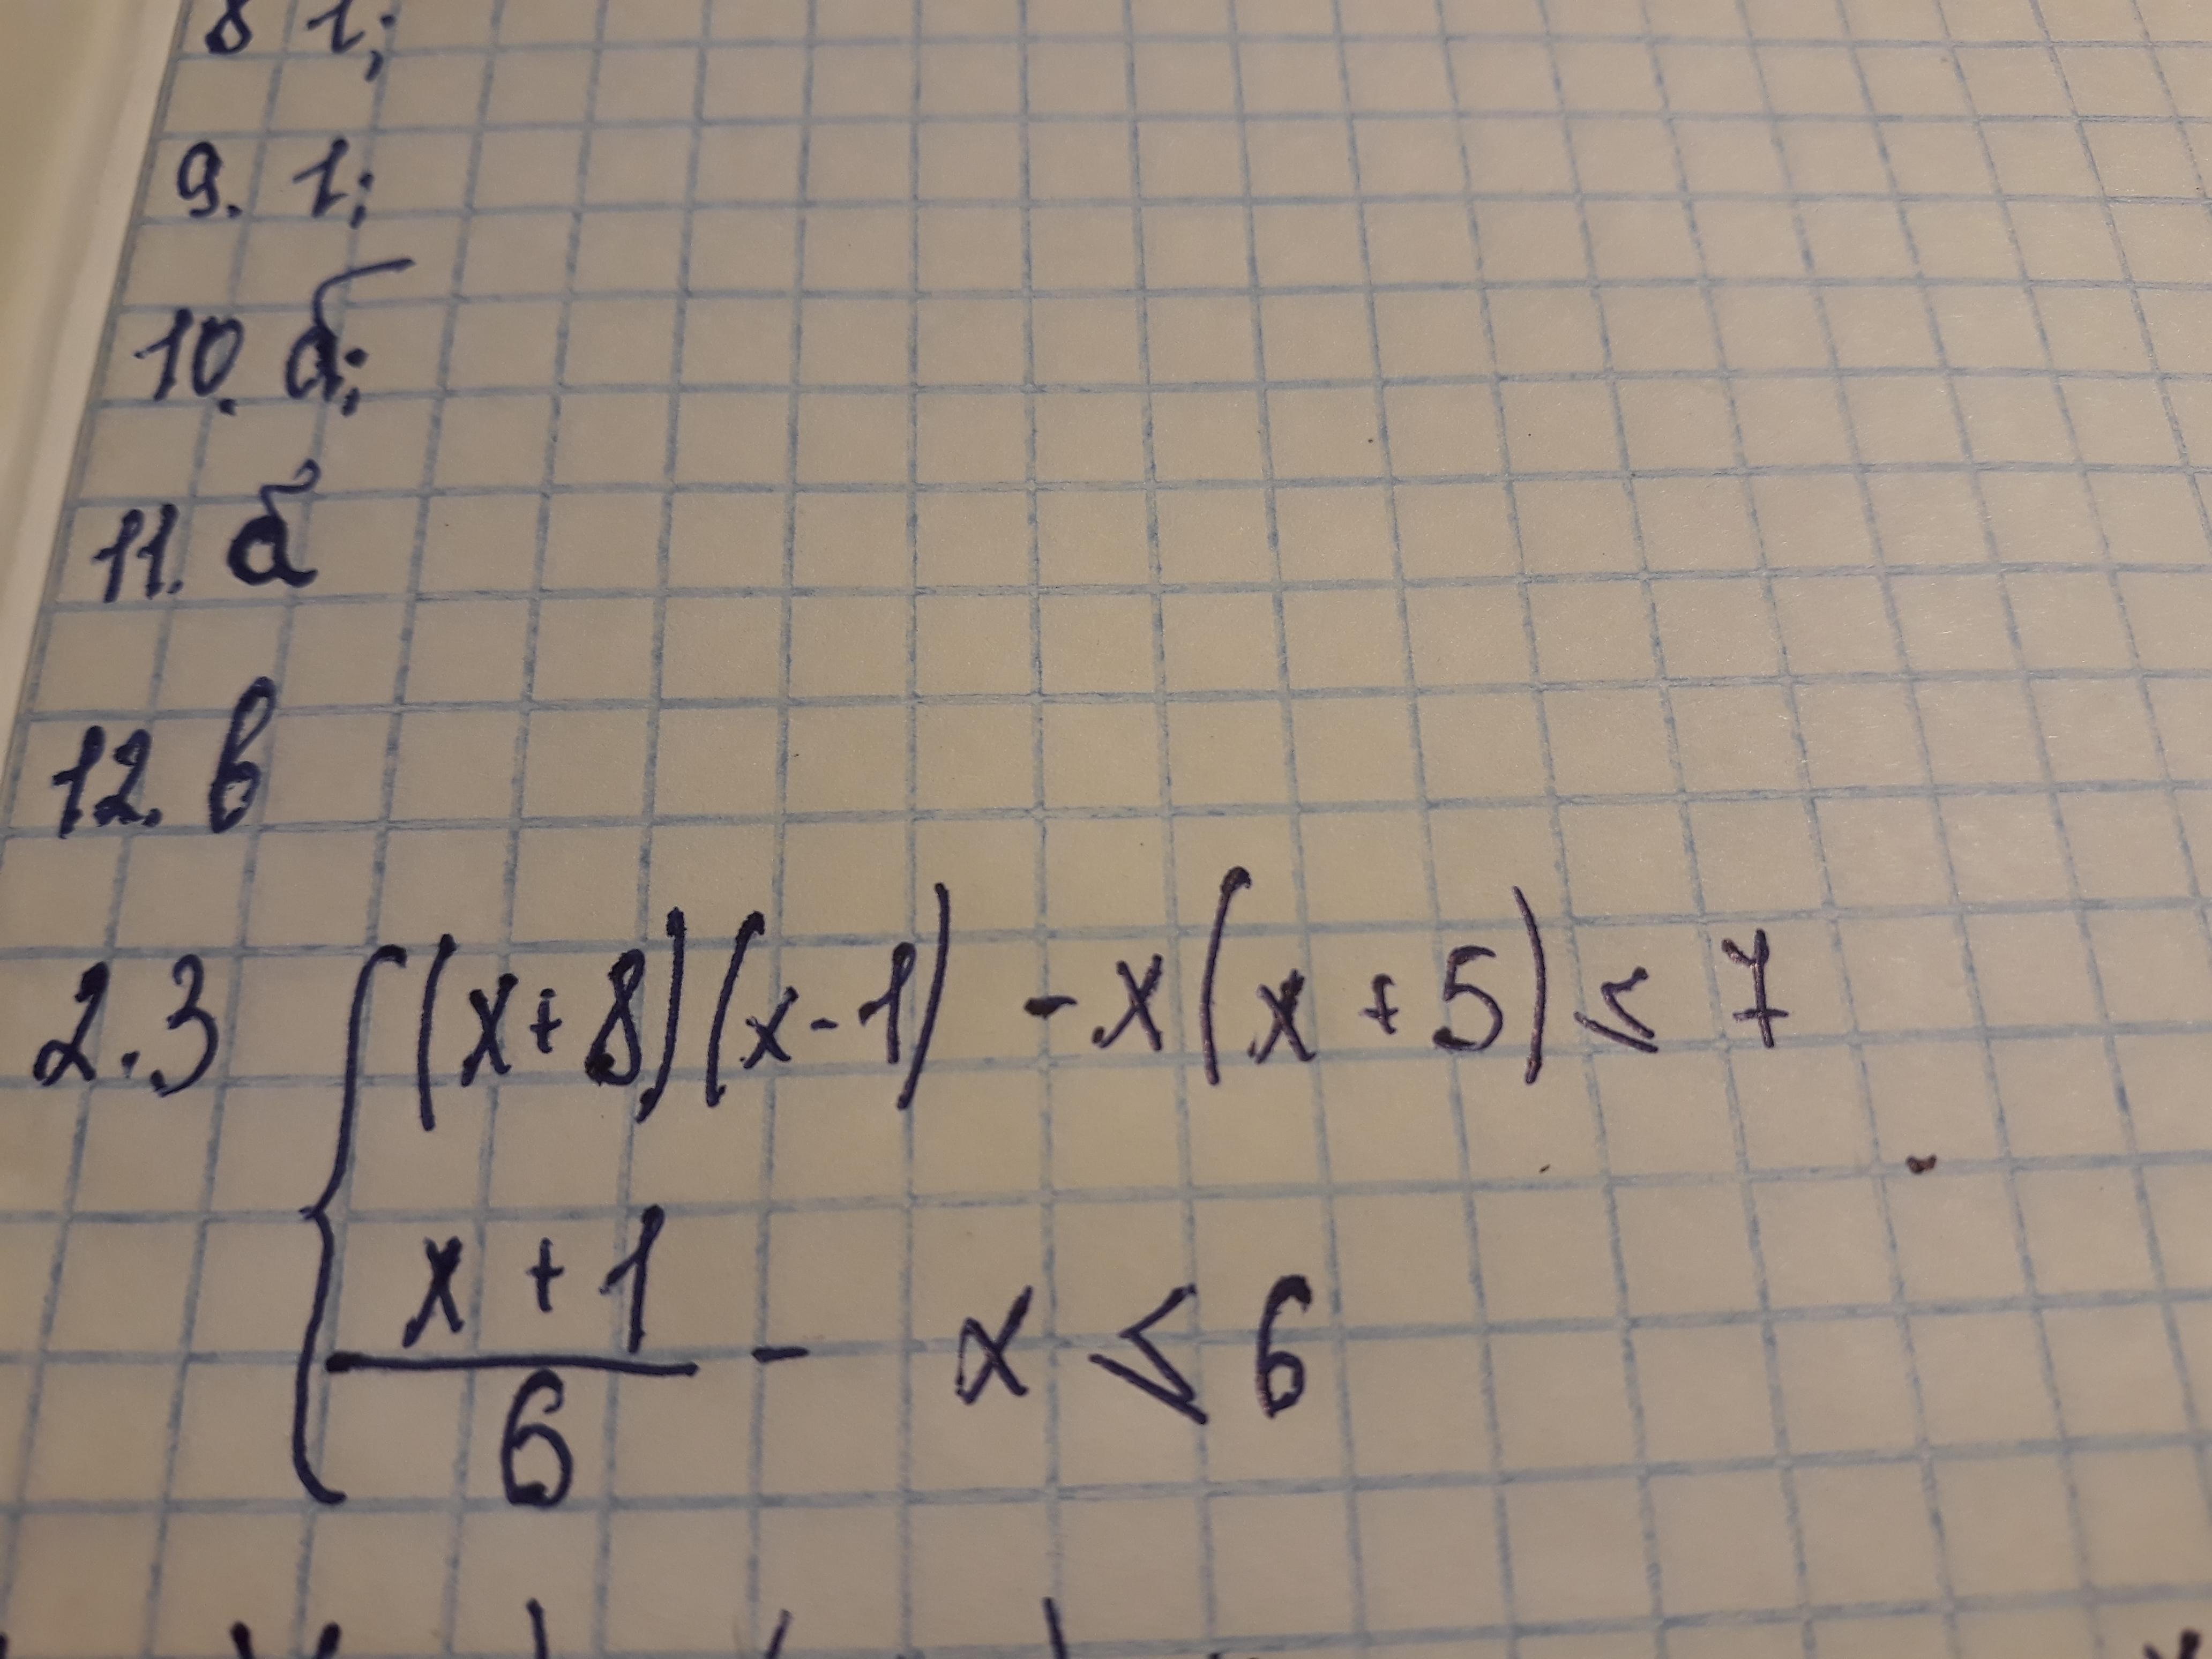 8 1;
9. 1;
10. б;
11. а
12. в
2.3 { (x+8)(x-1) - x(x+5) ≤ 7
x+1/6 - x ≤ 6